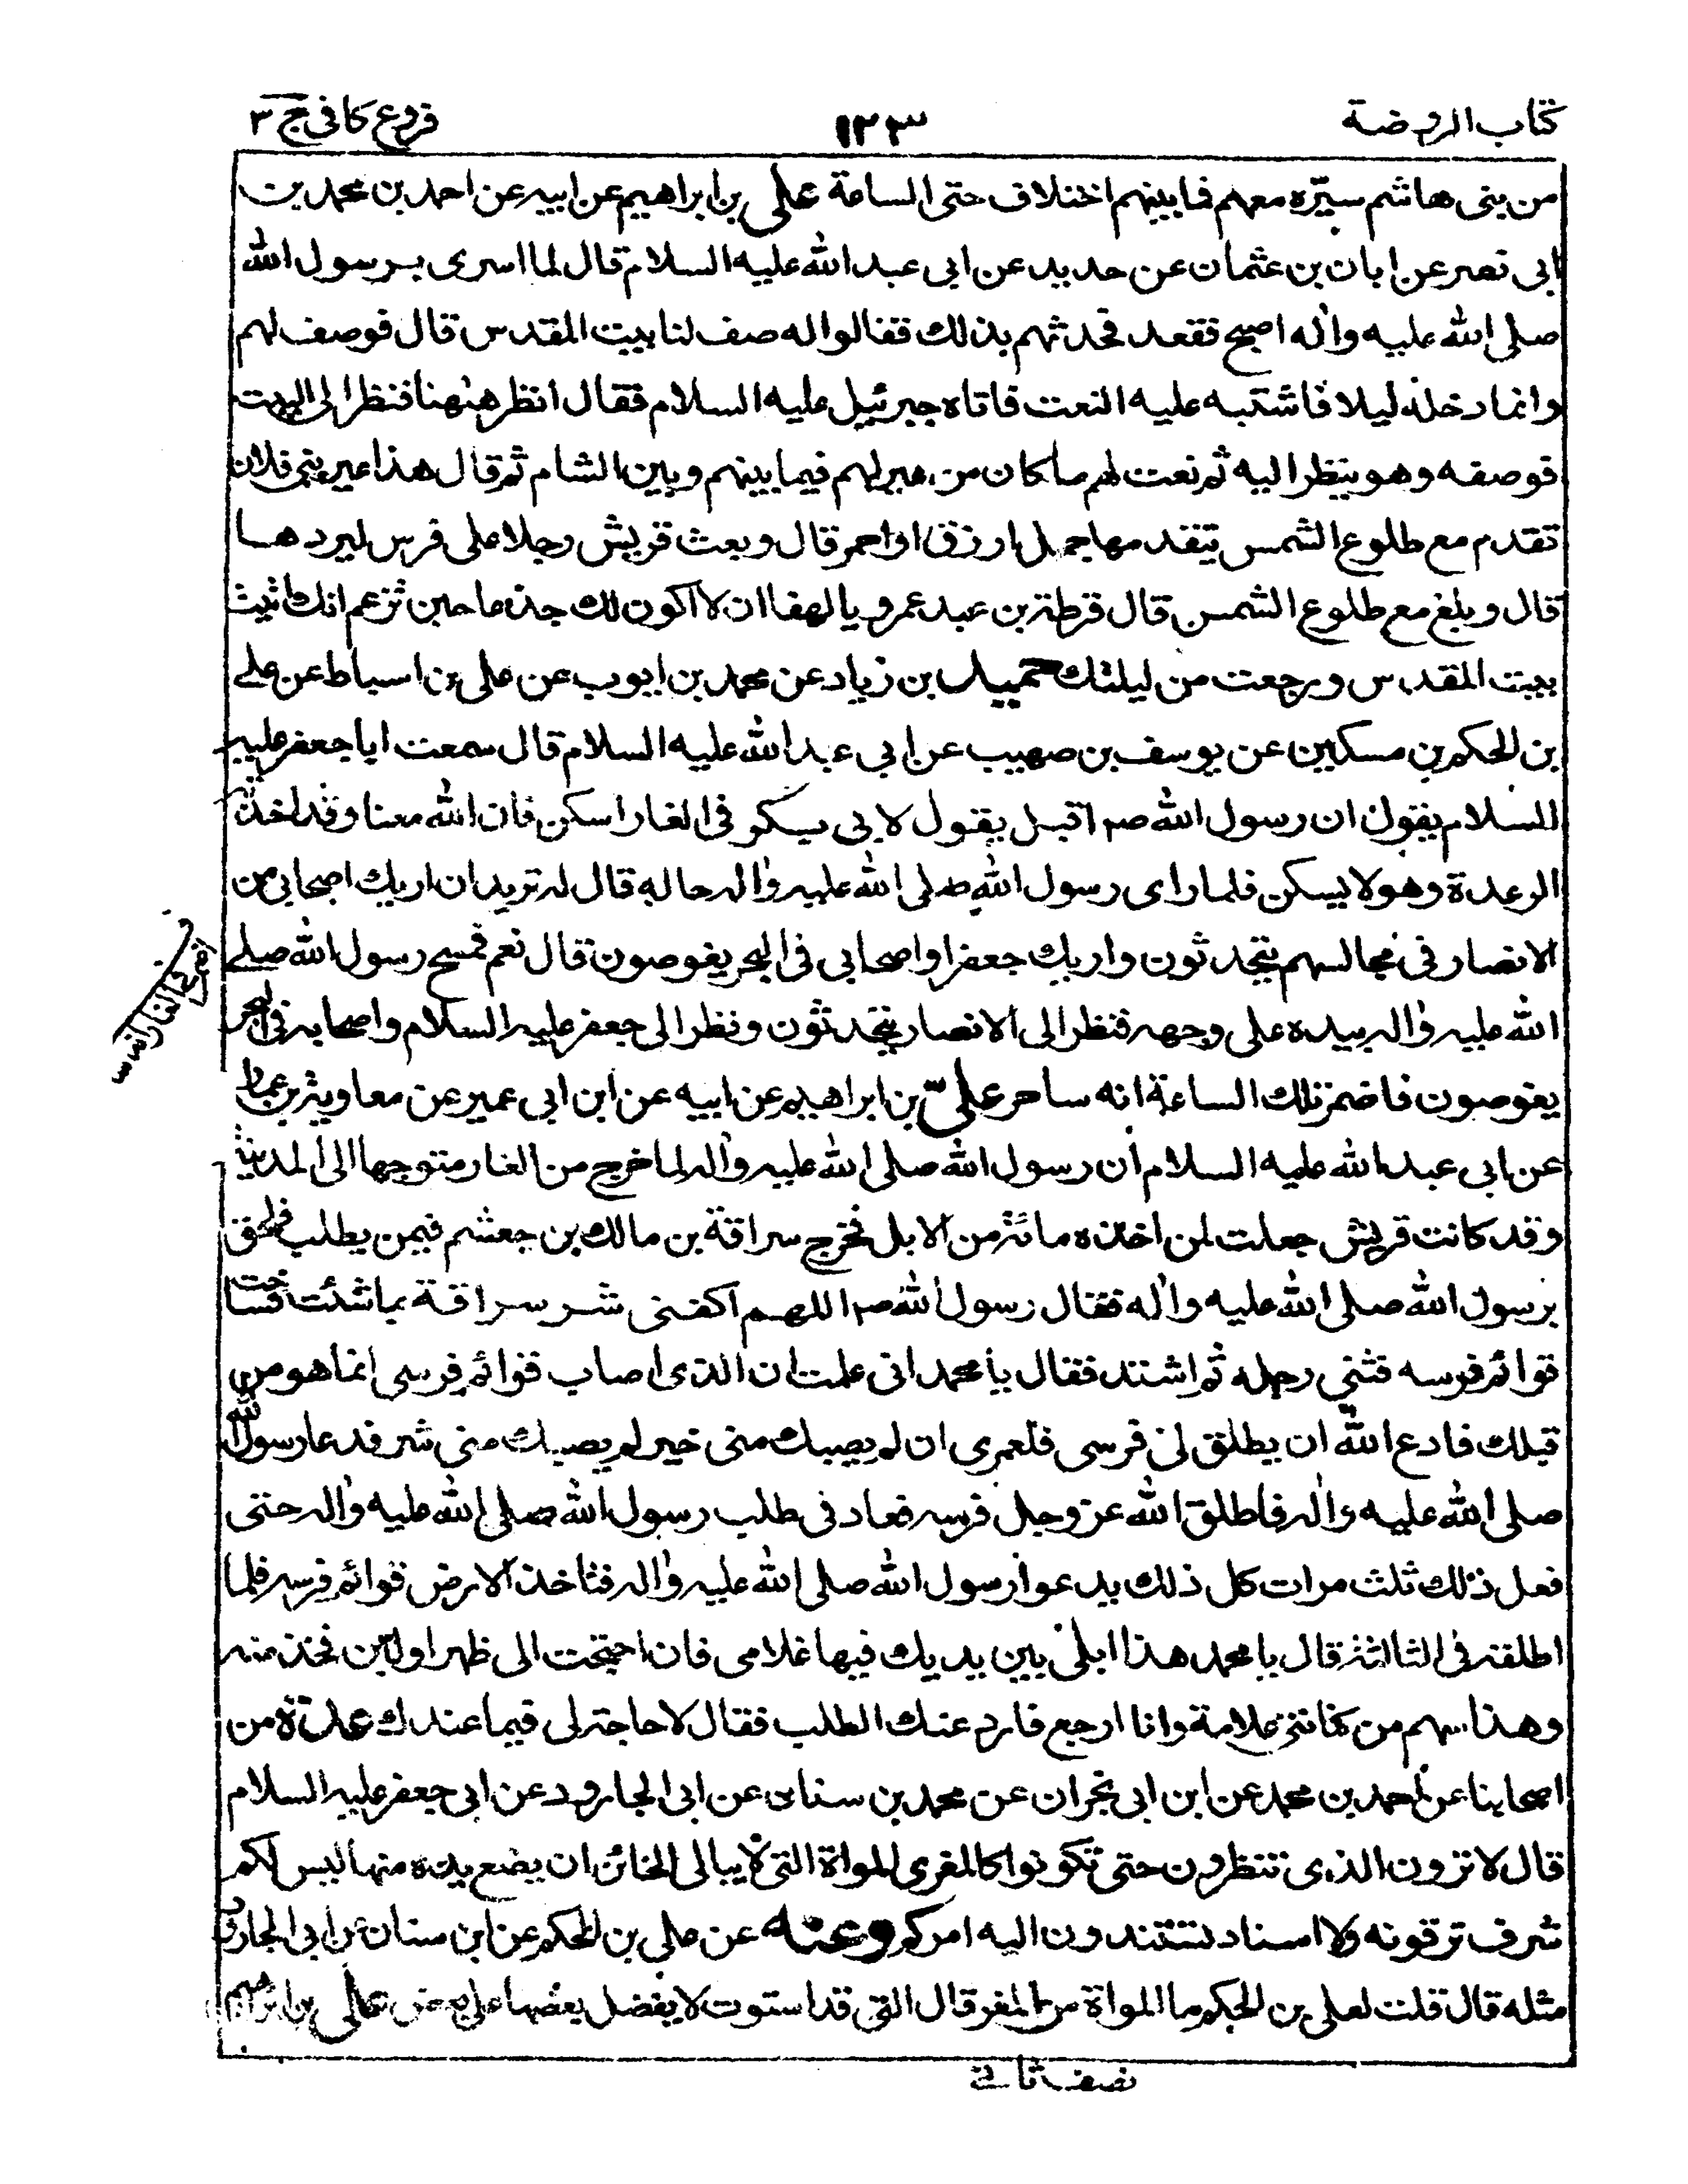 كتاب الروضة
١٢٣
فروع كافى ج ٣
من بنى هاشم سيّره معهم فما بينهم اختلاف حتى الساعة على بن ابراهيم عن ابيه عن احمد بن محمد بن
ابى نصر عن ابان بن عثمان عن حديد عن ابى عبد الله عليه السلام قال لما اسرى برسول الله
صلى الله عليه واله اصبح فقعد فحدثهم بذلك فقالوا له صف لنا بيت المقدس قال فوصف لهم
وانما دخله ليلا فاشتبه عليه النعت فاتاه جبرئيل عليه السلام فقال انظر ههنا فنظر الى البيت
فوصفه وهو ينظر اليه ثم نعت لهم ما كان من عير لهم فيما بينهم وبين الشام ثم قال هذا عير بنى فلان
تقدم مع طلوع الشمس يتقدمها جمل اورق او احمر قال وبعث قريش رجلا على فرس ليردها
قال وبلغ مع طلوع الشمس قال قرطة بن عبد عمرو يا لهفا ان لا اكون لك جذعا حين تزعم انك اتيت
بيت المقدس ورجعت من ليلتك حميد بن زياد عن محمد بن ايوب عن على بن اسباط عن على
بن الحكم بن مسكين عن يوسف بن صهيب عن ابى عبد الله عليه السلام قال سمعت ابا جعفر عليه
السلام يقول ان رسول الله صم اقبل يقول لابى بكر فى الغار اسكن فان الله معنا وقد اخذته
الرعدة وهو لا يسكن فلما راى رسول الله صلى الله عليه واله حاله قال له تريد ان اريك اصحابى من
الانصار فى مجالسهم يتحدثون واريك جعفرا واصحابى فى البحر يغوصون قال نعم فمسح رسول الله صلى
الله عليه واله بيده على وجهه فنظر الى الانصار يتحدثون ونظر الى جعفر عليه السلام واصحابه فى البحر
يغوصون فاضمر تلك الساعة انه ساحر علىّ بن ابراهيم عن ابيه عن ابن ابى عمير عن معاوية بن عمار
عن ابى عبد الله عليه السلام ان رسول الله صلى الله عليه واله لما خرج من الغار متوجها الى المدينة
وقد كانت قريش جعلت لمن اخذه مائة من الابل فخرج سراقة بن مالك بن جعشم فيمن يطلب فلحق
برسول الله صلى الله عليه واله فقال رسول الله صم اللهم اكفنى شر سراقة بما شئت فساخت
قوائم فرسه فثنى رجله ثم اشتد فقال يا محمد انى علمت ان الذى اصاب قوائم فرسى انما هو من
قبلك فادع الله ان يطلق لى فرسى فلعمرى ان لم يصبك منى خير لم يصبك منى شر فدعا رسول الله
صلى الله عليه واله فاطلق الله عز وجل فرسه فعاد فى طلب رسول الله صلى الله عليه واله حتى
فعل ذلك ثلث مرات كل ذلك يدعوا رسول الله صلى الله عليه واله فتاخذ الارض قوائم فرسه فلما
اطلقه فى الثالثة قال يا محمد هذا ابلى بين يديك فيها غلامى فان احتجت الى ظهر او لبن فخذ منه
وهذا سهم من كنانتى علامة وانا ارجع فارد عنك الطلب فقال لا حاجة لى فيما عندك عدة من
اصحابنا عن احمد بن محمد عن ابن ابى نجران عن محمد بن سنان عن ابى الجارود عن ابى جعفر عليه السلام
قال لا ترون الذى تنتظرون حتى تكونوا كالمعزى المواة التى لا يبالى الخائن ان يضع يده منها ليس لكم
شرف ترقونه ولا اسناد تستندون اليه امركم وعنه عن على بن الحكم عن ابن سنان عن ابى الجارود
مثله قال قلت لعلى بن الحكم ما المواة من المعز قال التى قد استوت لا يفضل بعضها على بعض على بن ابراهيم
نصف ثانى